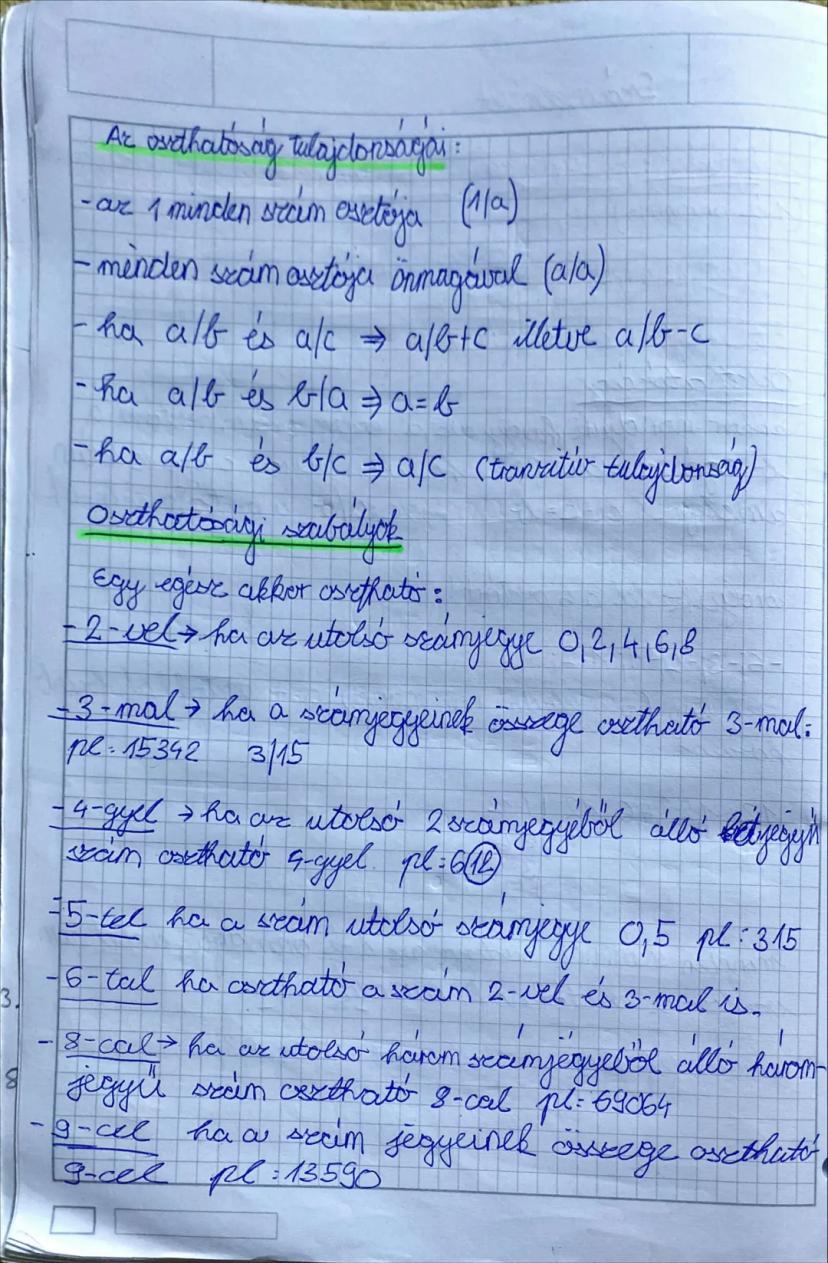 Az oszthatóság tulajdonságai:
-az 1 minden szám osztója (1/a)
-minden szám osztója önmagával (a/a)
-ha a/b és a/c ⇒ a/b+c illetve a/b-c
-ha a/b és b/a ⇒ a=b
-ha a/b és b/c ⇒ a/c (tranzitív tulajdonság)
Oszthatósági szabályok
Egy egész akkor osztható:
-2-vel→ ha az utolsó számjegye 0,2,4,6,8
-3-mal→ ha a számjegyeinek összege osztható 3-mal:
pl: 15342 3/15
-4-gyel → ha az utolsó 2 számjegyéből álló
szám osztható 4-gyel pl: 612
-5-tel ha a szám utolsó számjegye 0,5 pl: 315
-6-tal ha osztható a szám 2-vel és 3-mal is.
-8-cal→ ha az utolsó három számjégyeből álló három-
jegyű szám osztható 8-cal pl: 69064
-9-cel ha a szám jegyeinek összege osztható
9-cel pl: 13590